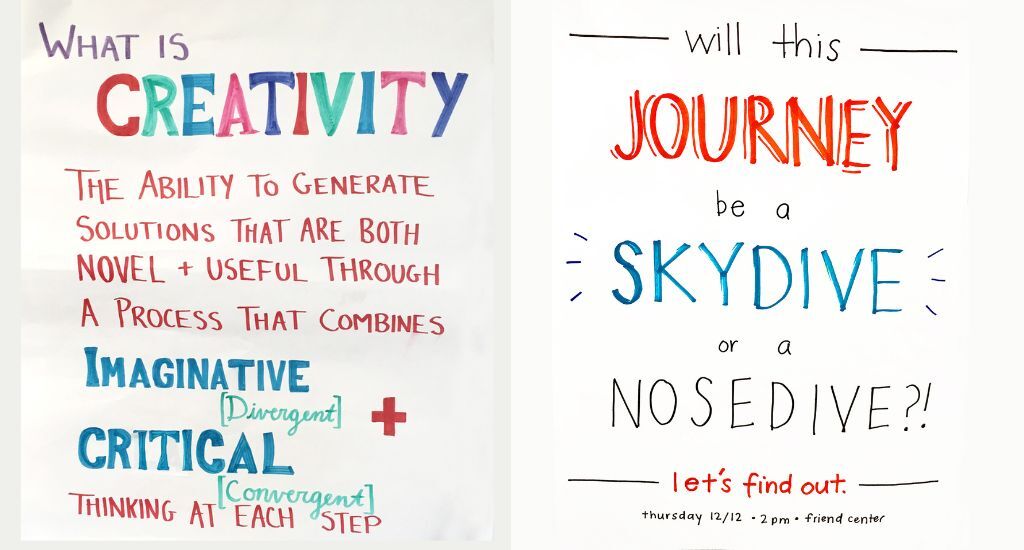 WHAT IS
CREATIVITY
THE ABILITY TO GENERATE
SOLUTIONS THAT ARE BOTH
NOVEL + USEFUL THROUGH
A PROCESS THAT COMBINES
IMAGINATIVE
[Divergent]
+
CRITICAL
[Convergent]
THINKING AT EACH STEP
will this
JOURNEY
be a
SKYDIVE
or a
NOSEDIVE?!
let's find out.
thursday 12/12 • 2pm • friend center